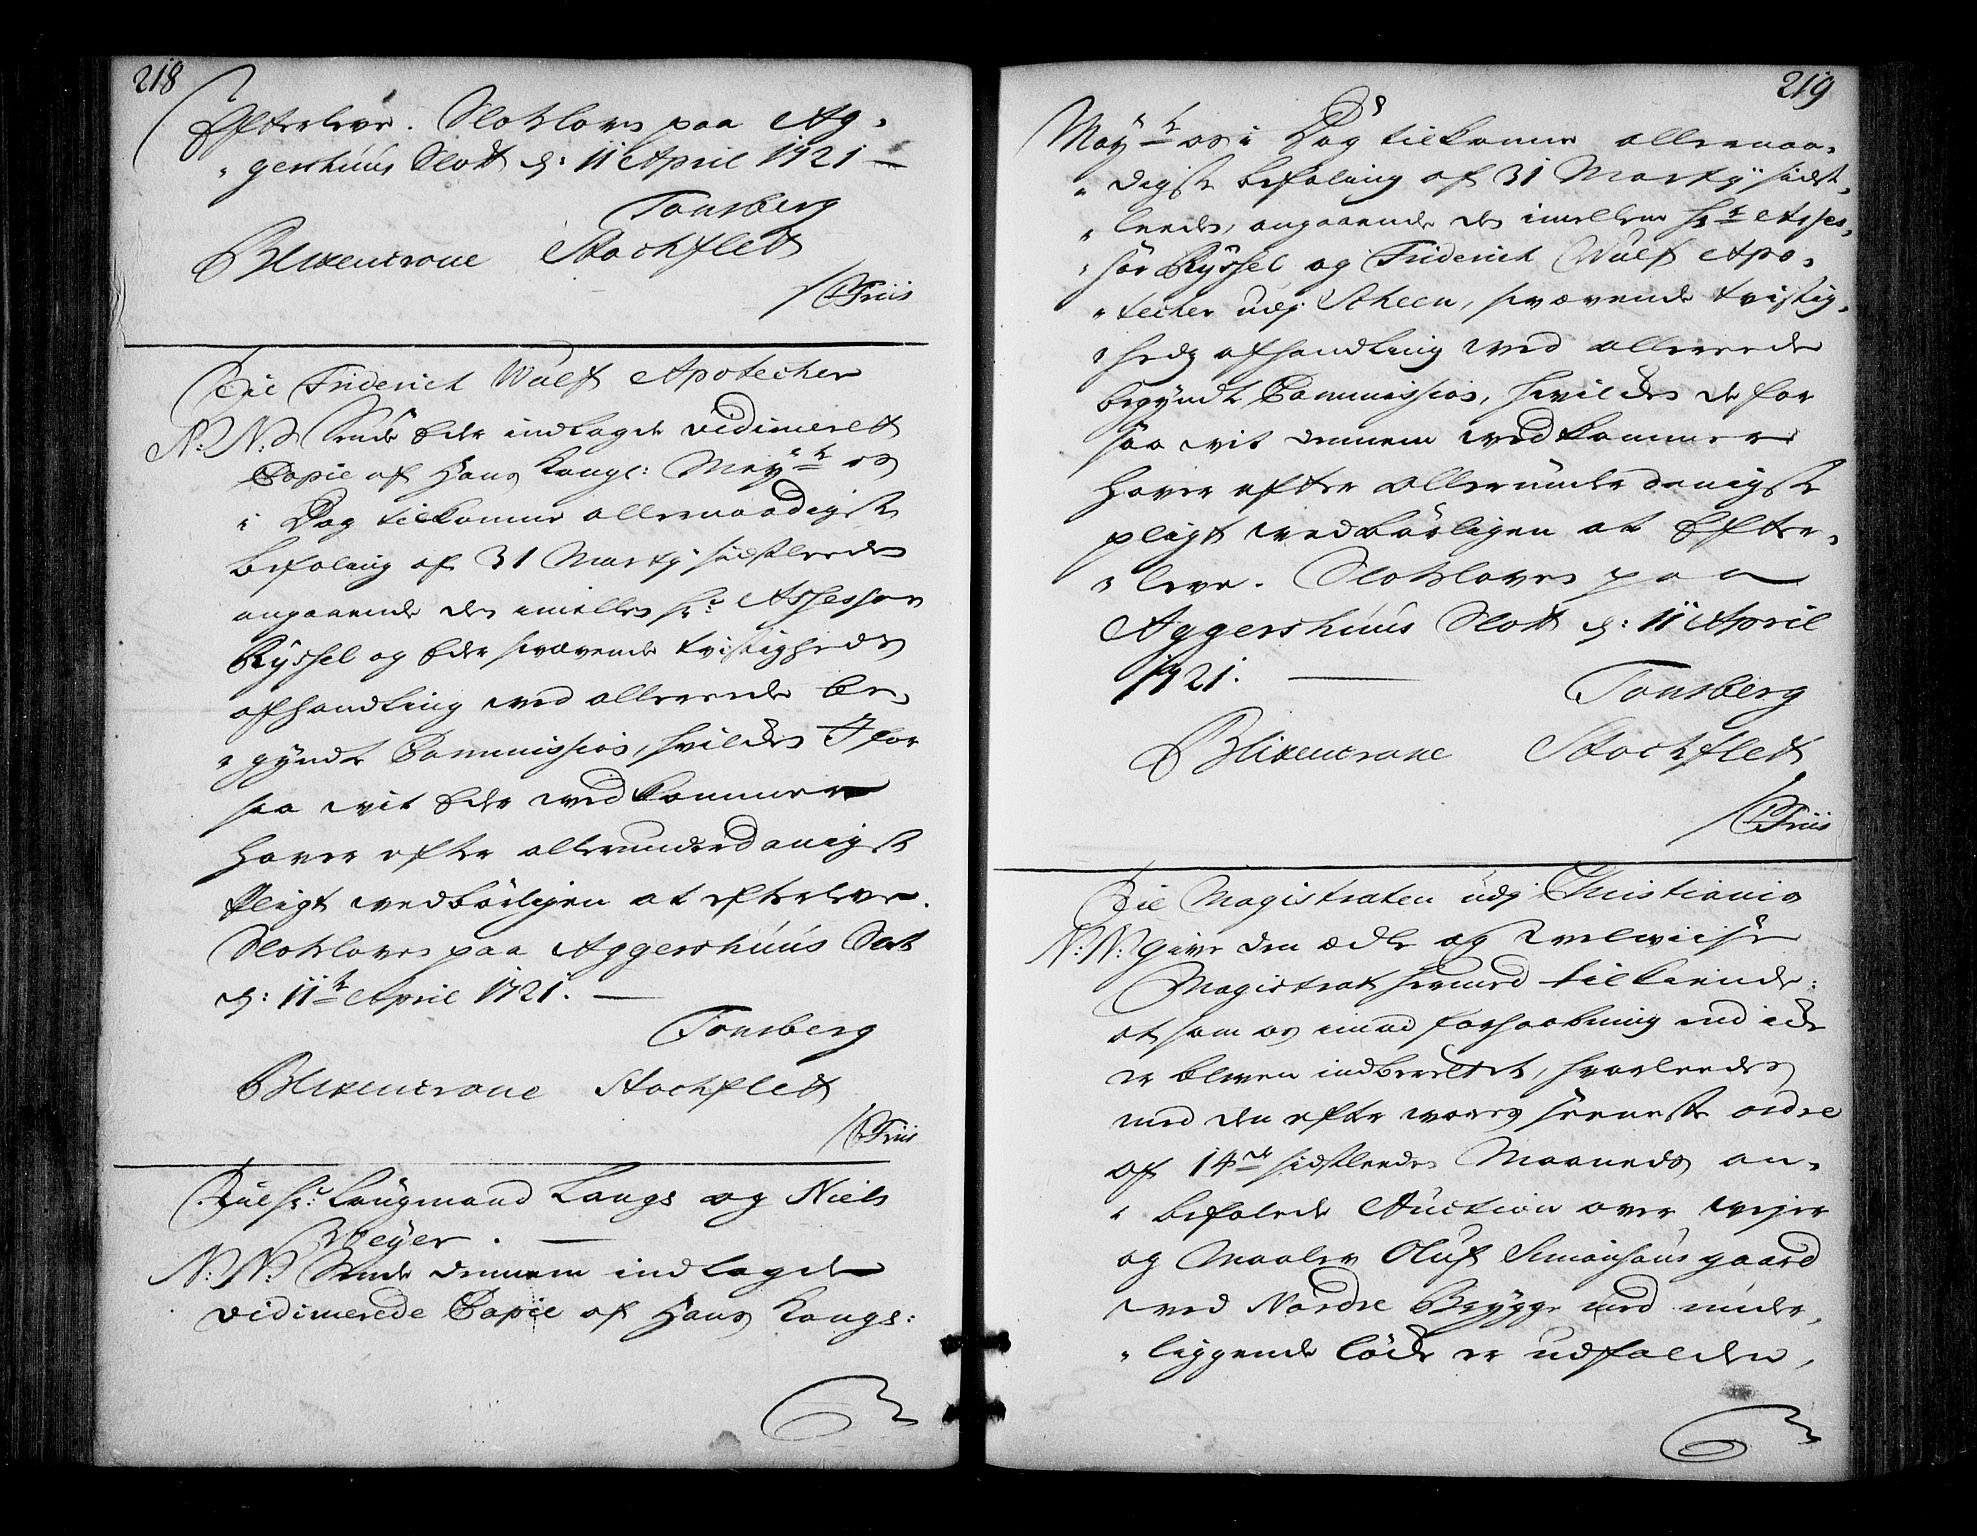 218
Efterleve. Slotsloven paa Ag-
gershuus Slott d: 11 April 1721
Tonsberg
Blixencrone Stochflett
/ CFriis
Til Friderich Wulf Apotecher
N: N: Sende Eder indlagde vidimerett
Copie af Hans Kongl: Mayts os
i Dag tilkomne allernaadigste
befaling af 31 Marty sidstleeden
angaaende den imellem Hr: Assessor
Ryssel og Eder svævende tvistigheds
afhandling ved allereede be-
gyndt Commission, hvilcken I for
saa vit Eder vedkommer
haver efter allerunderdanigst
Pligt vedbørligen at efterleve.
Slotsloven paa Aggershuus Slot
d: 11te April 1721.
Tonsberg
Blixencrone Stochflett
/ CFriis
Til Hr: Laugmand Lange og Niels
Weyer.
N: N: Sende dennem indlagde
vidimerede Copie af Hans Kongl:
219
Mayts os i Dag tilkomne allernaa-
digste befaling af 31 Marty sidst-
leeden, angaaende den imellem Hr Asses-
sor Ryssel og Friderich Wulf Apo-
techer udj Scheen, svævende tvistig-
heds afhandling ved allereede
begyndt Commission, hvilcken de for
saa vit dennem vedkommer
haver efter allerunderdanigste
pligt vedbørligen at Efter-
leve. Slotsloven paa
Aggershuus Slott d: 11 April
1721.
Tonsberg
Blixencrone Stochflett
/ CFriis
Til Magistraten udj Christiania
N: N: Give den ædle og velviise
Magistrat hermed tilkiende:
at som os imod forhaabning end icke
er bleven indberettet, hvorleedes
med den efter vores seeneste ordre
af 14de sidstleeden Maaneds an-
befalede Auction over vejer
og Maaler Oluf Simonsøns gaard
ved Nordre Brygge med under-
liggende løcke er udfalden,